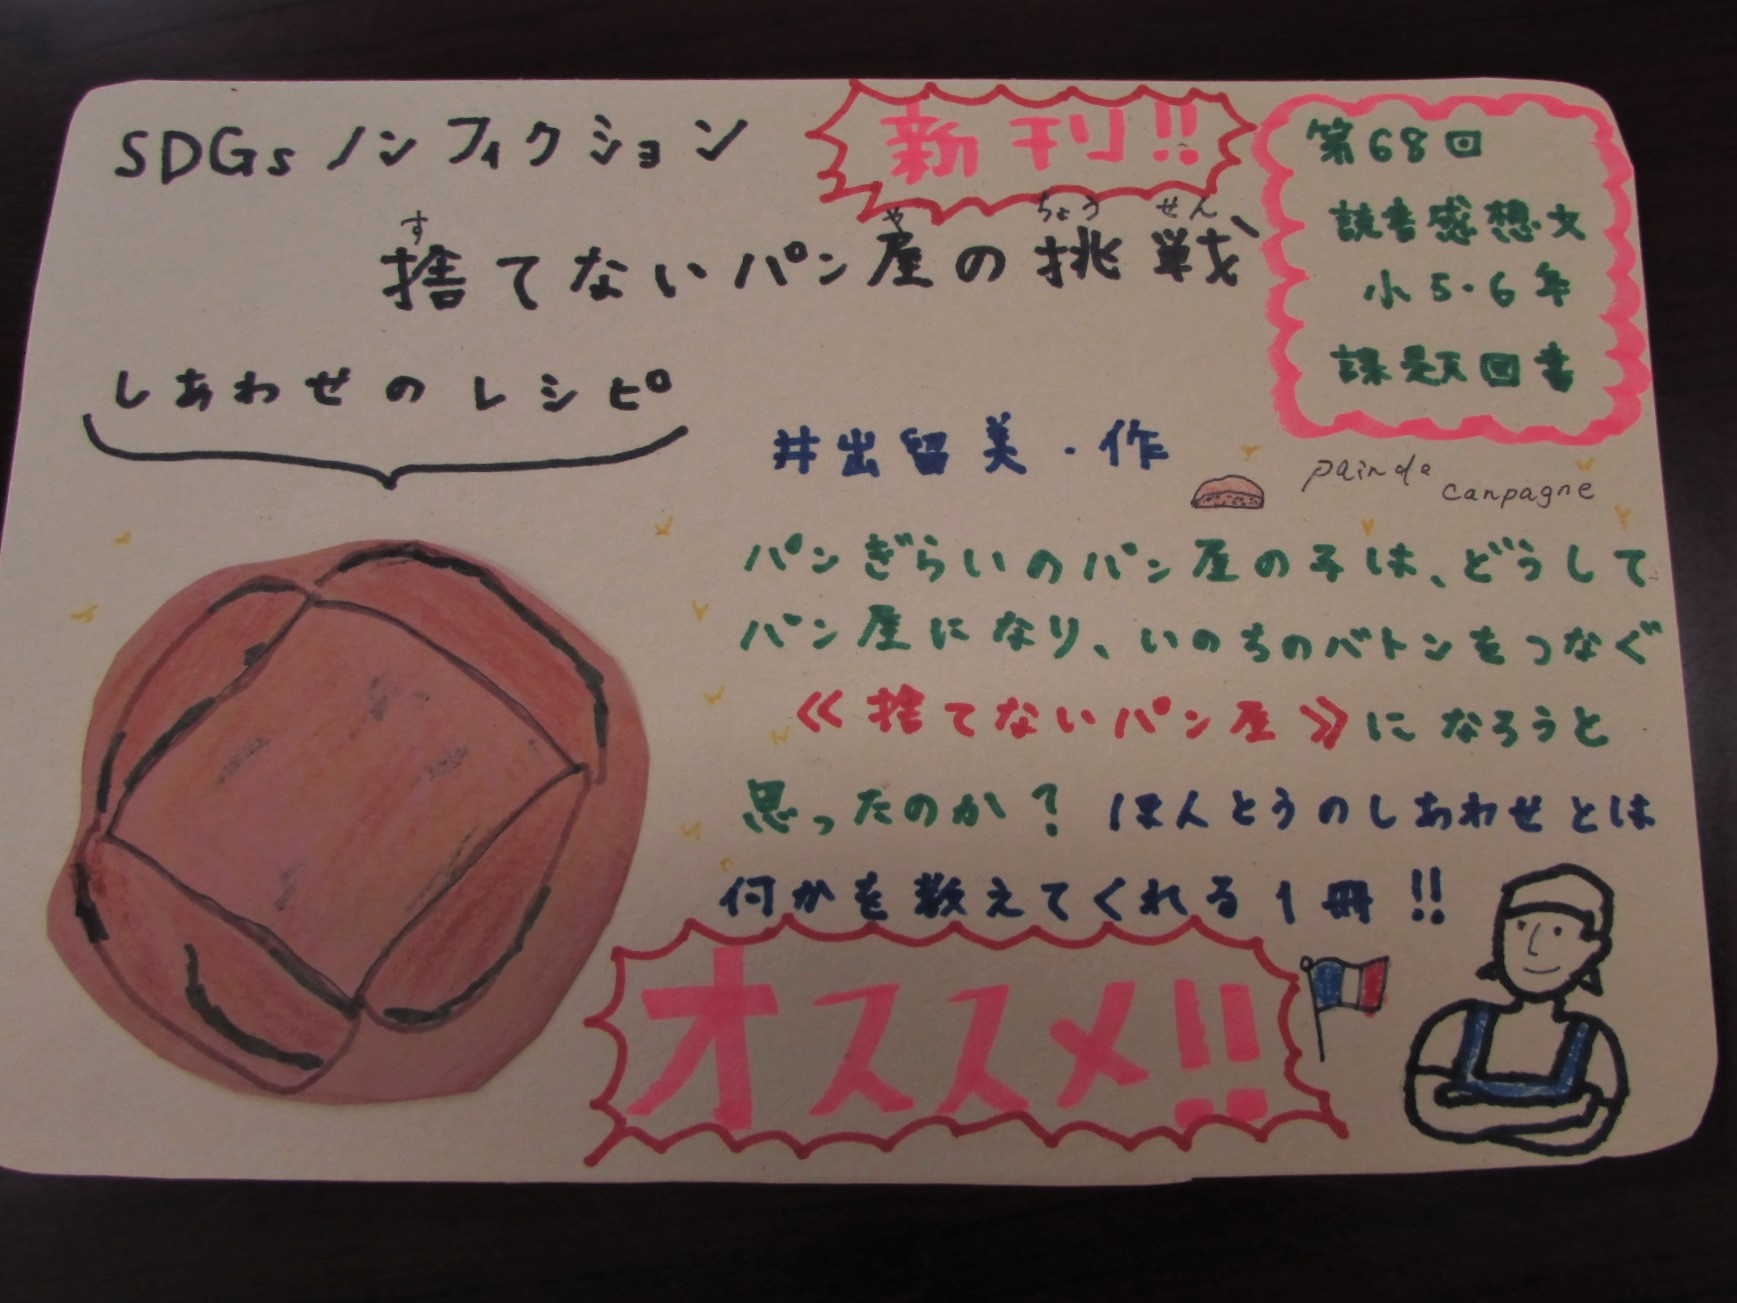 SDGsノンフィクション
新刊!!
第68回
読書感想文
小5・6年
課題図書
す や ちょう せん
捨てないパン屋の挑戦
しあわせのレシピ
井出留美・作
pain da
canpagne
パンぎらいのパン屋の子は、どうして
パン屋になり、いのちのバトンをつなぐ
《捨てないパン屋》になろうと
思ったのか？ほんとうのしあわせとは
何かを教えてくれる1冊!!
オススメ!!